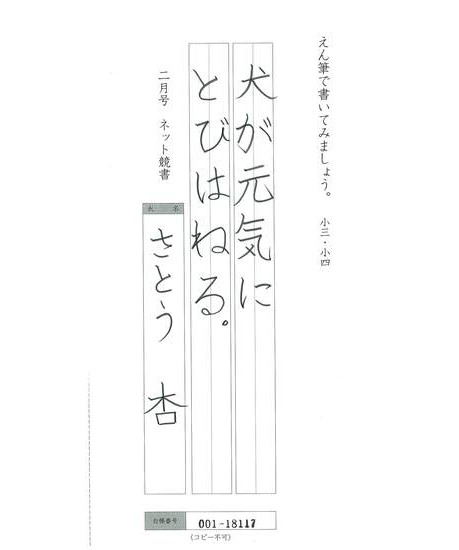 えん筆で書いてみましょう。 小三・小四
犬が元気に
とびはねる。
二月号 ネット競書
氏名
さとう 杏
台帳番号 001-18117
(コピー不可)